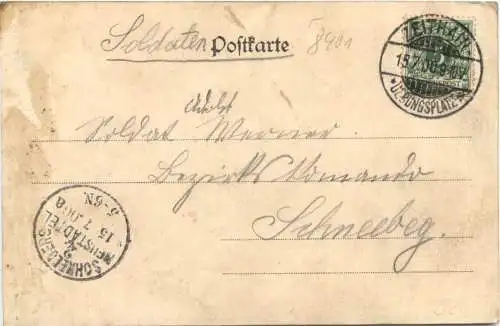 Soldaten Postkarte
8901
ZEITHAIN
15.7.00.9-10V.
* ÜBUNGSPLATZ *
Adolf
Soldat Werner.
Bezirks Comando
Schneebeg.
SCHNEEBERG
NEUSTÄDTEL
15 7 00
5-6N.